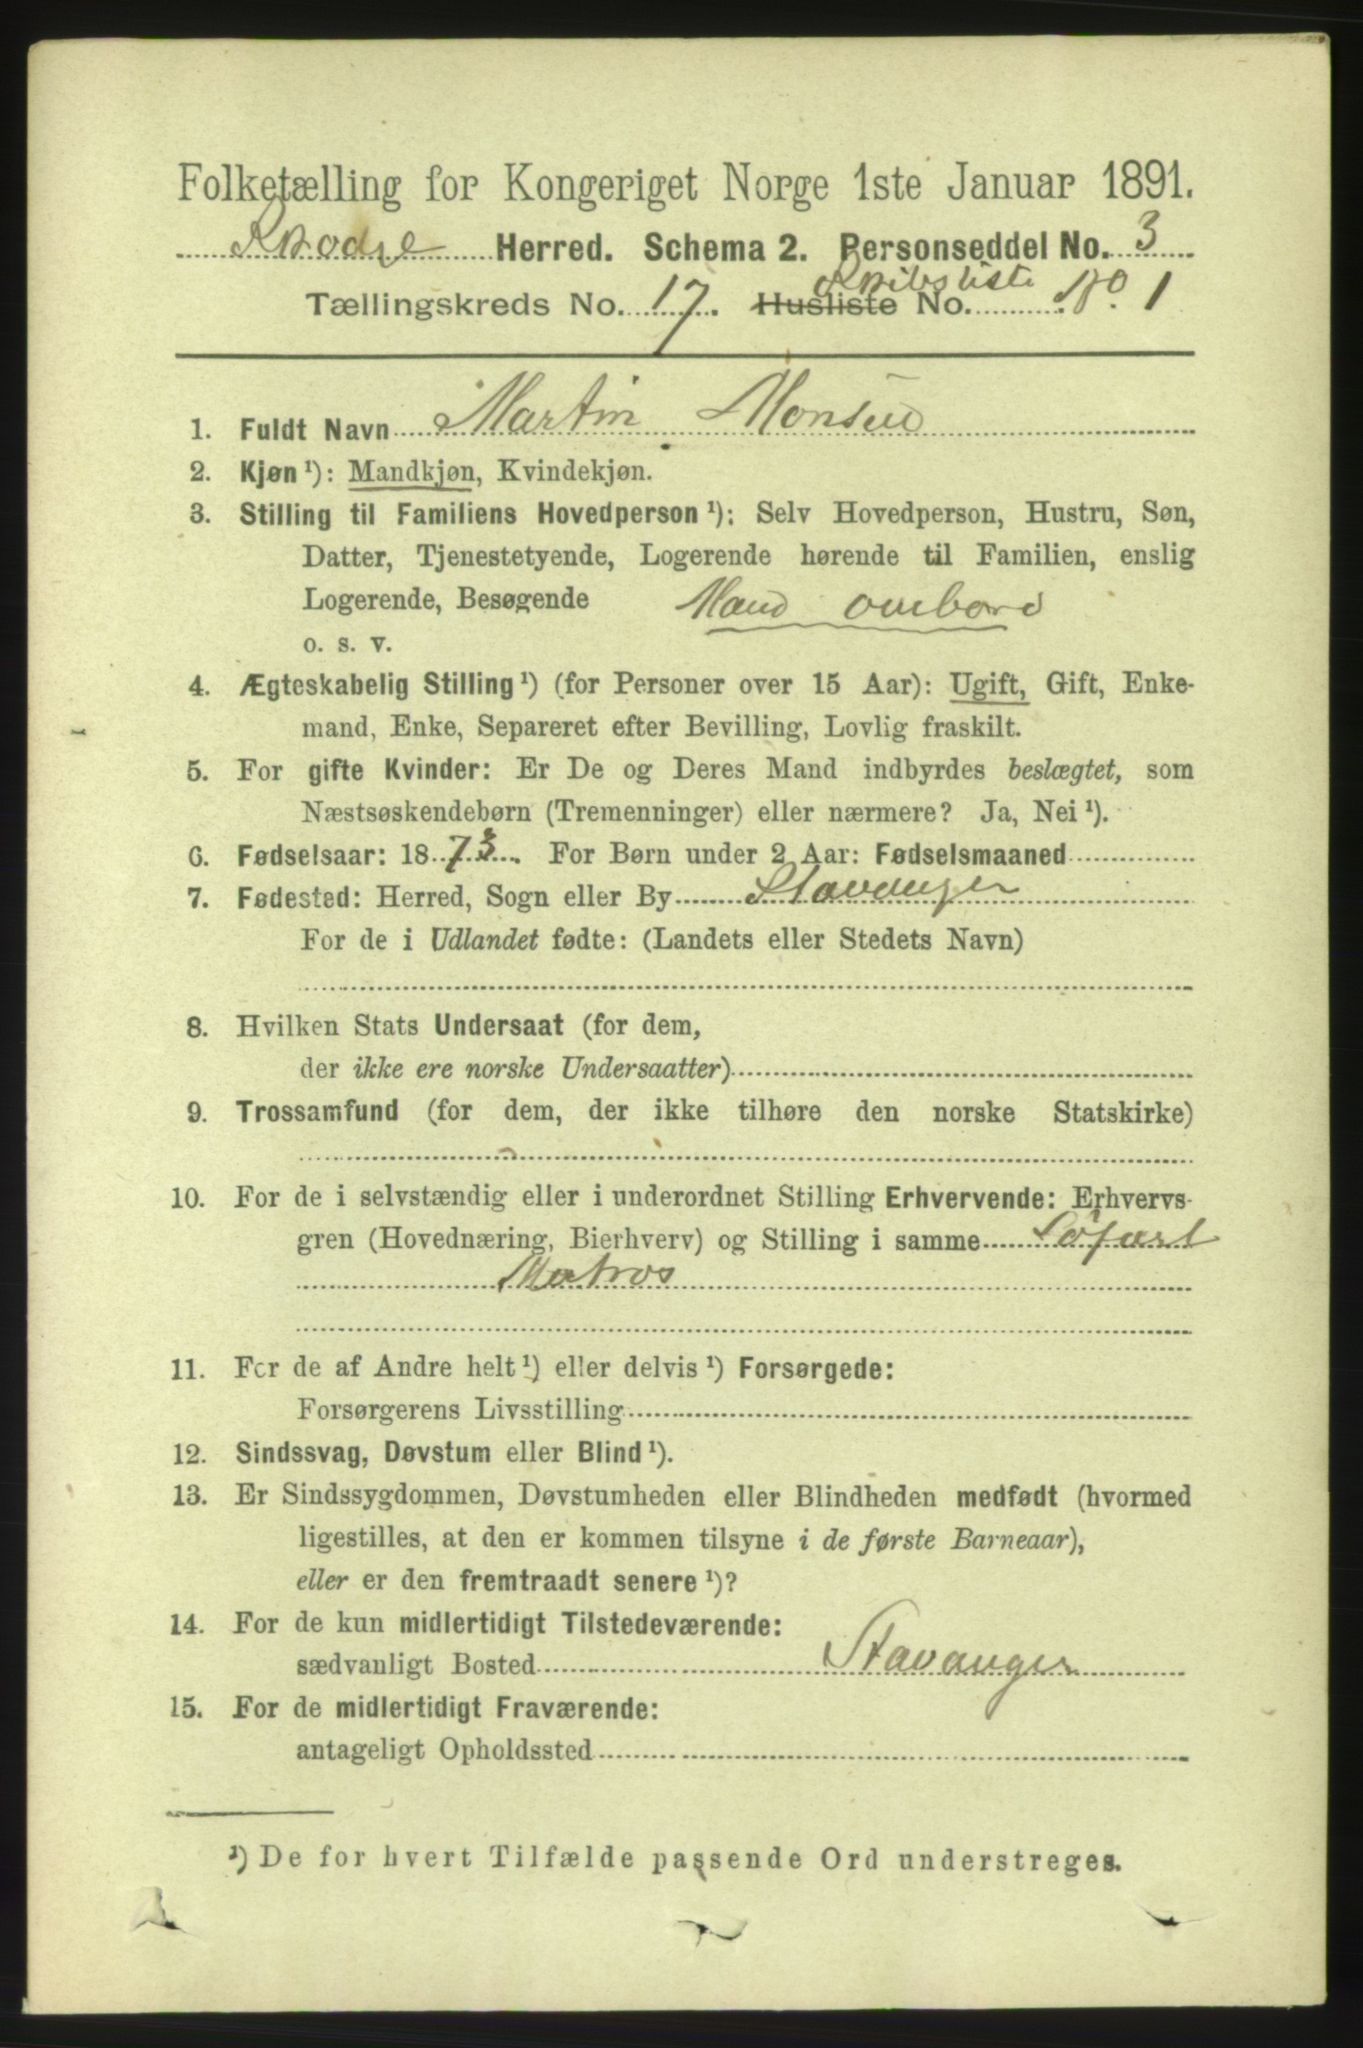 Folketælling for Kongeriget Norge 1ste Januar 1891.
Skodje Herred. Schema 2. Personseddel No. 3
Tællingskreds No. 17. Husliste Skibsliste No. No. 1
1. Fuldt Navn Martin Monsen
2. Kjøn ¹): Mandkjøn, Kvindekjøn.
3. Stilling til Familiens Hovedperson ¹): Selv Hovedperson, Hustru, Søn,
Datter, Tjenestetyende, Logerende hørende til Familien, enslig
Logerende, Besøgende Mand ombord
o. s. v.
4. Ægteskabelig Stilling ¹) (for Personer over 15 Aar): Ugift, Gift, Enke-
mand, Enke, Separeret efter Bevilling, Lovlig fraskilt.
5. For gifte Kvinder: Er De og Deres Mand indbyrdes beslægtet, som
Næstsøskendebørn (Tremenninger) eller nærmere? Ja, Nei ¹).
6. Fødselsaar: 1873. For Børn under 2 Aar: Fødselsmaaned
7. Fødested: Herred, Sogn eller By Stavanger
For de i Udlandet fødte: (Landets eller Stedets Navn)
8. Hvilken Stats Undersaat (for dem,
der ikke ere norske Undersaatter)
9. Trossamfund (for dem, der ikke tilhøre den norske Statskirke)
10. For de i selvstændig eller i underordnet Stilling Erhvervende: Erhvervs-
gren (Hovednæring, Bierhverv) og Stilling i samme Söfart
Matros
11. For de af Andre helt ¹) eller delvis ¹) Forsørgede:
Forsørgerens Livsstilling
12. Sindssvag, Døvstum eller Blind ¹).
13. Er Sindssygdommen, Døvstumheden eller Blindheden medfødt (hvormed
ligestilles, at den er kommen tilsyne i de første Barneaar),
eller er den fremtraadt senere ¹)?
14. For de kun midlertidigt Tilstedeværende:
sædvanligt Bosted Stavanger
15. For de midlertidigt Fraværende:
antageligt Opholdssted
¹) De for hvert Tilfælde passende Ord understreges.